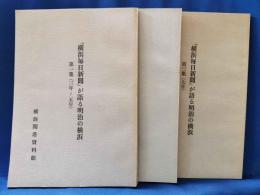 『横浜毎日新聞』が語る明治の横浜
第一集（三年～五年）
横浜開港資料館
『横浜毎日新聞』が語る明治の横浜